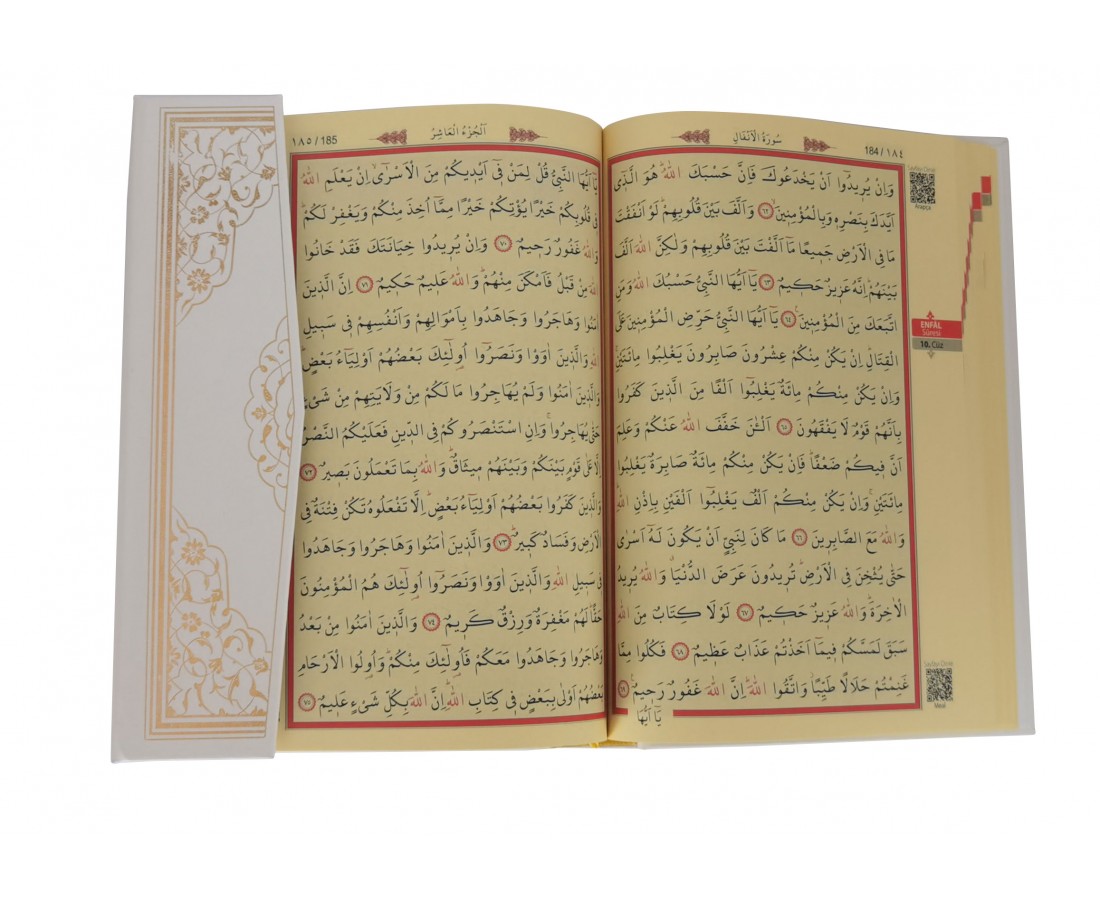 184 / ١٨٤
سُورَةُ الْاَنْفَالِ
وَاِنْ يُر۪يدُٓوا اَنْ يَخْدَعُوكَ فَاِنَّ حَسْبَكَ اللّٰهُۜ هُوَ الَّذ۪ٓي
اَيَّدَكَ بِنَصْرِه۪ وَبِالْمُؤْمِن۪ينَۙ ﴿٦٢﴾ وَاَلَّفَ بَيْنَ قُلُوبِهِمْۜ لَوْ اَنْفَقْتَ
مَا فِي الْاَرْضِ جَم۪يعًا مَٓا اَلَّفْتَ بَيْنَ قُلُوبِهِمْ وَلٰكِنَّ اللّٰهَ اَلَّفَ
بَيْنَهُمْۜ اِنَّهُ عَز۪يزٌ حَك۪يمٌ ﴿٦٣﴾ يَٓا اَيُّهَا النَّبِيُّ حَسْبُكَ اللّٰهُ وَمَنِ
اتَّبَعَكَ مِنَ الْمُؤْمِن۪ينَ۟ ﴿٦٤﴾ يَٓا اَيُّهَا النَّبِيُّ حَرِّضِ الْمُؤْمِن۪ينَ عَلَى
الْقِتَالِۜ اِنْ يَكُنْ مِنْكُمْ عِشْرُونَ صَابِرُونَ يَغْلِبُوا مِائَتَيْنِۚ
وَاِنْ يَكُنْ مِنْكُمْ مِائَةٌ يَغْلِبُٓوا اَلْفًا مِنَ الَّذ۪ينَ كَفَرُوا
بِاَنَّهُمْ قَوْمٌ لَا يَفْقَهُونَ ﴿٦٥﴾ اَلْـٰٔنَ خَفَّفَ اللّٰهُ عَنْكُمْ وَعَلِمَ
اَنَّ ف۪يكُمْ ضَعْفًاۜ فَاِنْ يَكُنْ مِنْكُمْ مِائَةٌ صَابِرَةٌ يَغْلِبُوا
مِائَتَيْنِۚ وَاِنْ يَكُنْ مِنْكُمْ اَلْفٌ يَغْلِبُٓوا اَلْفَيْنِ بِاِذْنِ اللّٰهِۜ
وَاللّٰهُ مَعَ الصَّابِر۪ينَ ﴿٦٦﴾ مَا كَانَ لِنَبِيٍّ اَنْ يَكُونَ لَهُٓ اَسْرٰى
حَتّٰى يُثْخِنَ فِي الْاَرْضِۜ تُر۪يدُونَ عَرَضَ الدُّنْيَاۗ وَاللّٰهُ يُر۪يدُ
الْاٰخِرَةَۜ وَاللّٰهُ عَز۪يزٌ حَك۪يمٌ ﴿٦٧﴾ لَوْلَا كِتَابٌ مِنَ اللّٰهِ
سَبَقَ لَمَسَّكُمْ ف۪يمَٓا اَخَذْتُمْ عَذَابٌ عَظ۪يمٌ ﴿٦٨﴾ فَكُلُوا مِمَّا
غَنِمْتُمْ حَلَالًا طَيِّبًاۘ وَاتَّقُوا اللّٰهَۜ اِنَّ اللّٰهَ غَفُورٌ رَح۪يمٌ۟ ﴿٦٩﴾
يَٓا اَيُّهَا
Arapça
ENFÂL
Sûresi
10. Cüz
Meal
١٨٥ / 185
اَلْجُزْءُ الْعَاشِرُ
يَٓا اَيُّهَا النَّبِيُّ قُلْ لِمَنْ ف۪ٓي اَيْد۪يكُمْ مِنَ الْاَسْرٰٓىۙ اِنْ يَعْلَمِ اللّٰهُ
ف۪ي قُلُوبِكُمْ خَيْرًا يُؤْتِكُمْ خَيْرًا مِمَّٓا اُخِذَ مِنْكُمْ وَيَغْفِرْ لَكُمْۜ
وَاللّٰهُ غَفُورٌ رَح۪يمٌ ﴿٧٠﴾ وَاِنْ يُر۪يدُوا خِيَانَتَكَ فَقَدْ خَانُوا
اللّٰهَ مِنْ قَبْلُ فَاَمْكَنَ مِنْهُمْۜ وَاللّٰهُ عَل۪يمٌ حَك۪يمٌ ﴿٧١﴾ اِنَّ الَّذ۪ينَ
اٰمَنُوا وَهَاجَرُوا وَجَاهَدُوا بِاَمْوَالِهِمْ وَاَنْفُسِهِمْ ف۪ي سَب۪يلِ
اللّٰهِ وَالَّذ۪ينَ اٰوَوْا وَنَصَرُٓوا اُو۬لٰٓئِكَ بَعْضُهُمْ اَوْلِيَٓاءُ بَعْضٍۜ
وَالَّذ۪ينَ اٰمَنُوا وَلَمْ يُهَاجِرُوا مَا لَكُمْ مِنْ وَلَايَتِهِمْ مِنْ شَيْءٍ
حَتّٰى يُهَاجِرُواۚ وَاِنِ اسْتَنْصَرُوكُمْ فِي الدّ۪ينِ فَعَلَيْكُمُ النَّصْرُ
اِلَّا عَلٰى قَوْمٍ بَيْنَكُمْ وَبَيْنَهُمْ م۪يثَاقٌۜ وَاللّٰهُ بِمَا تَعْمَلُونَ بَص۪يرٌ ﴿٧٢﴾
وَالَّذ۪ينَ كَفَرُوا بَعْضُهُمْ اَوْلِيَٓاءُ بَعْضٍۜ اِلَّا تَفْعَلُوهُ تَكُنْ فِتْنَةٌ فِي
الْاَرْضِ وَفَسَادٌ كَب۪يرٌۜ ﴿٧٣﴾ وَالَّذ۪ينَ اٰمَنُوا وَهَاجَرُوا وَجَاهَدُوا
ف۪ي سَب۪يلِ اللّٰهِ وَالَّذ۪ينَ اٰوَوْا وَنَصَرُٓوا اُو۬لٰٓئِكَ هُمُ الْمُؤْمِنُونَ
حَقًّاۜ لَهُمْ مَغْفِرَةٌ وَرِزْقٌ كَر۪يمٌ ﴿٧٤﴾ وَالَّذ۪ينَ اٰمَنُوا مِنْ بَعْدُ
وَهَاجَرُوا وَجَاهَدُوا مَعَكُمْ فَاُو۬لٰٓئِكَ مِنْكُمْۜ وَاُو۬لُوا الْاَرْحَامِ
بَعْضُهُمْ اَوْلٰى بِبَعْضٍ ف۪ي كِتَابِ اللّٰهِۜ اِنَّ اللّٰهَ بِكُلِّ شَيْءٍ عَل۪يمٌ ﴿٧٥﴾